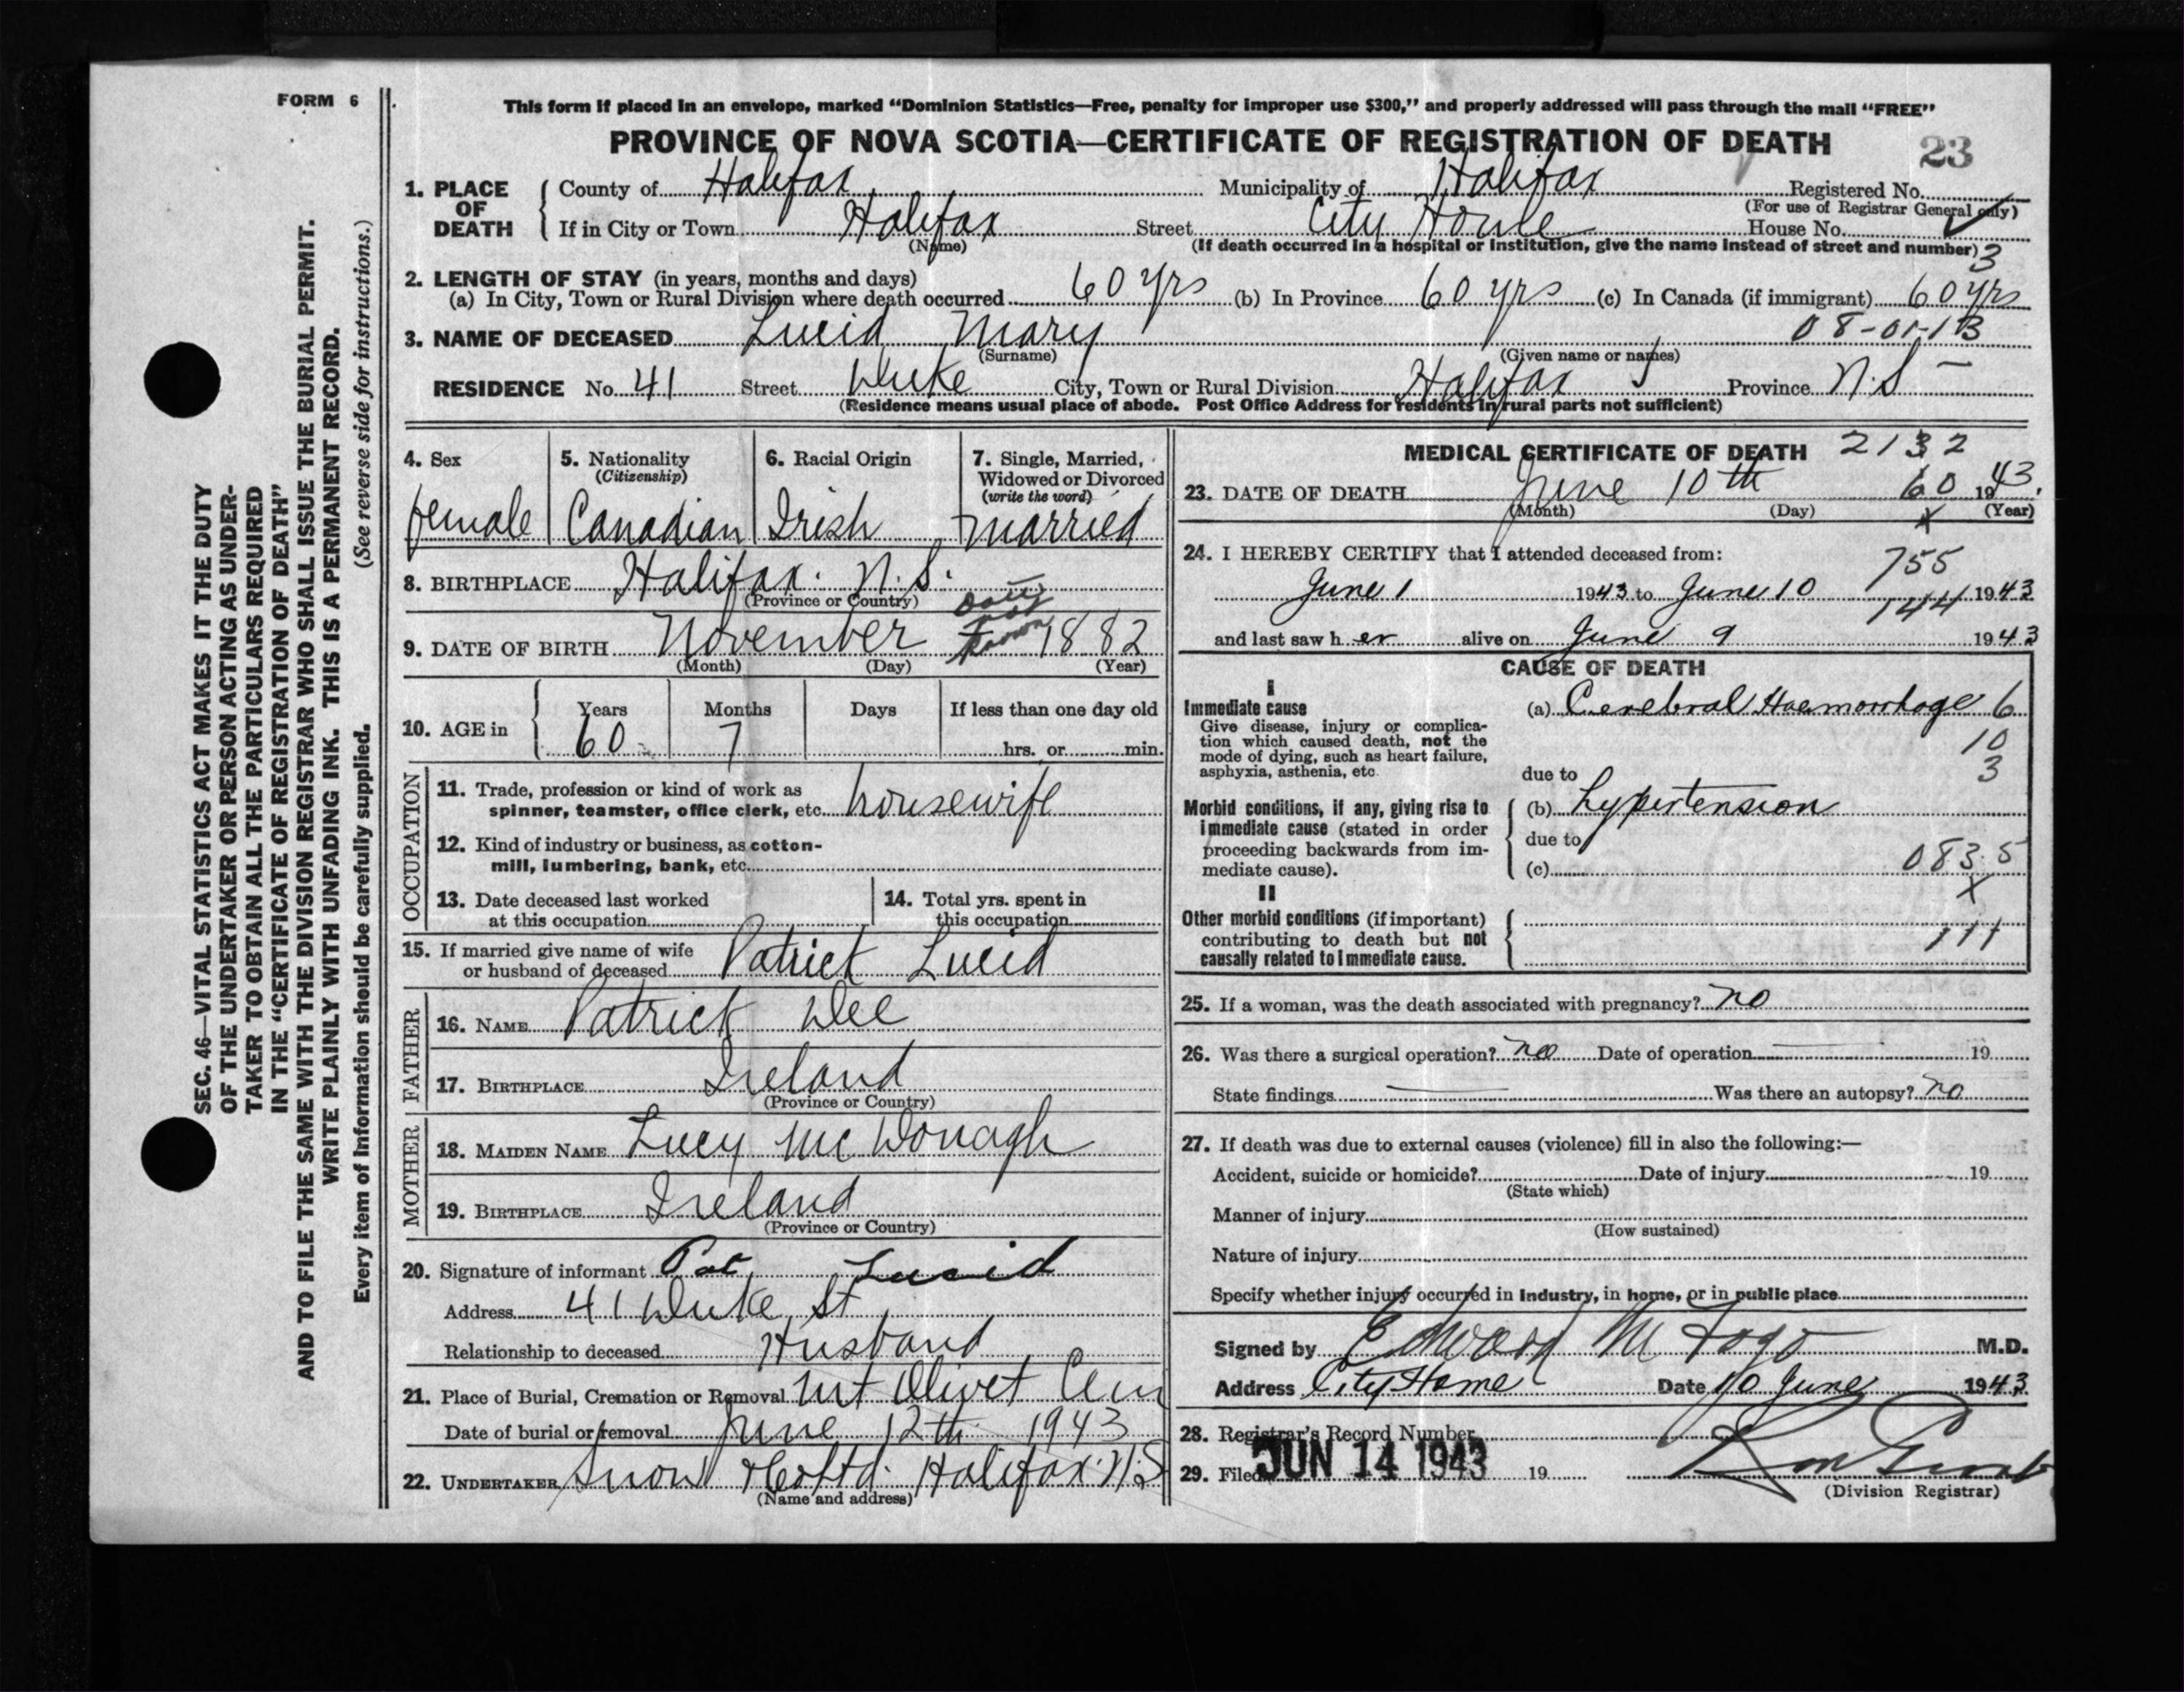 FORM 6
This form if placed in an envelope, marked "Dominion Statistics—Free, penalty for improper use $300," and properly addressed will pass through the mail "FREE"
PROVINCE OF NOVA SCOTIA—CERTIFICATE OF REGISTRATION OF DEATH 23
1. PLACE OF DEATH { County of Halifax Municipality of Halifax Registered No.
(For use of Registrar General only)
If in City or Town Halifax Street City Home House No.
(Name) (If death occurred in a hospital or institution, give the name instead of street and number) 3
2. LENGTH OF STAY (in years, months and days)
(a) In City, Town or Rural Division where death occurred 60 yrs (b) In Province 60 yrs (c) In Canada (if immigrant) 60 yrs
3. NAME OF DECEASED Lucid Mary 08-01-13
(Surname) (Given name or names)
RESIDENCE No. 41 Street Duke City, Town or Rural Division Halifax Province N.S
(Residence means usual place of abode. Post Office Address for residents in rural parts not sufficient)
4. Sex 5. Nationality 6. Racial Origin 7. Single, Married,
(Citizenship) Widowed or Divorced
(write the word)
female Canadian Irish married
8. BIRTHPLACE Halifax. N.S.
(Province or Country)
9. DATE OF BIRTH November not known 1882
(Month) (Day) (Year)
10. AGE in { Years Months Days If less than one day old
60 7 hrs. or min.
OCCUPATION
11. Trade, profession or kind of work as
spinner, teamster, office clerk, etc. housewife
12. Kind of industry or business, as cotton-
mill, lumbering, bank, etc.
13. Date deceased last worked 14. Total yrs. spent in
at this occupation this occupation
15. If married give name of wife
or husband of deceased Patrick Lucid
FATHER
16. NAME Patrick Dee
17. BIRTHPLACE Ireland
(Province or Country)
MOTHER
18. MAIDEN NAME Lucy McDonagh
19. BIRTHPLACE Ireland
(Province or Country)
20. Signature of informant Pat Lucid
Address 41 Duke St
Relationship to deceased Husband
21. Place of Burial, Cremation or Removal Mt Olivet Cem
Date of burial or removal June 12th 1943
22. UNDERTAKER Snow & Co Ltd. Halifax. N.S
(Name and address)
MEDICAL CERTIFICATE OF DEATH 2132
23. DATE OF DEATH June 10th 60 1943.
(Month) (Day) X (Year)
24. I HEREBY CERTIFY that I attended deceased from: 755
June 1 1943 to June 10 144 1943
and last saw her alive on June 9 1943
CAUSE OF DEATH
I
Immediate cause (a) Cerebral Haemorrhage 6
Give disease, injury or complica-
tion which caused death, not the 10
mode of dying, such as heart failure, 3
asphyxia, asthenia, etc. due to
Morbid conditions, if any, giving rise to (b) hypertension
immediate cause (stated in order due to
proceeding backwards from im-
mediate cause). (c) 083.5
II X
Other morbid conditions (if important)
contributing to death but not 111
causally related to immediate cause.
25. If a woman, was the death associated with pregnancy? no
26. Was there a surgical operation? no Date of operation 19
State findings Was there an autopsy? no
27. If death was due to external causes (violence) fill in also the following:—
Accident, suicide or homicide? Date of injury 19
(State which)
Manner of injury
(How sustained)
Nature of injury
Specify whether injury occurred in industry, in home, or in public place
Signed by Edward M Fogo M.D.
Address City Home Date 10 June 1943
28. Registrar's Record Number
29. Filed JUN 14 1943 19
(Division Registrar)
SEC. 46—VITAL STATISTICS ACT MAKES IT THE DUTY
OF THE UNDERTAKER OR PERSON ACTING AS UNDER-
TAKER TO OBTAIN ALL THE PARTICULARS REQUIRED
IN THE "CERTIFICATE OF REGISTRATION OF DEATH"
AND TO FILE THE SAME WITH THE DIVISION REGISTRAR WHO SHALL ISSUE THE BURIAL PERMIT.
WRITE PLAINLY WITH UNFADING INK. THIS IS A PERMANENT RECORD.
Every item of information should be carefully supplied. (See reverse side for instructions.)